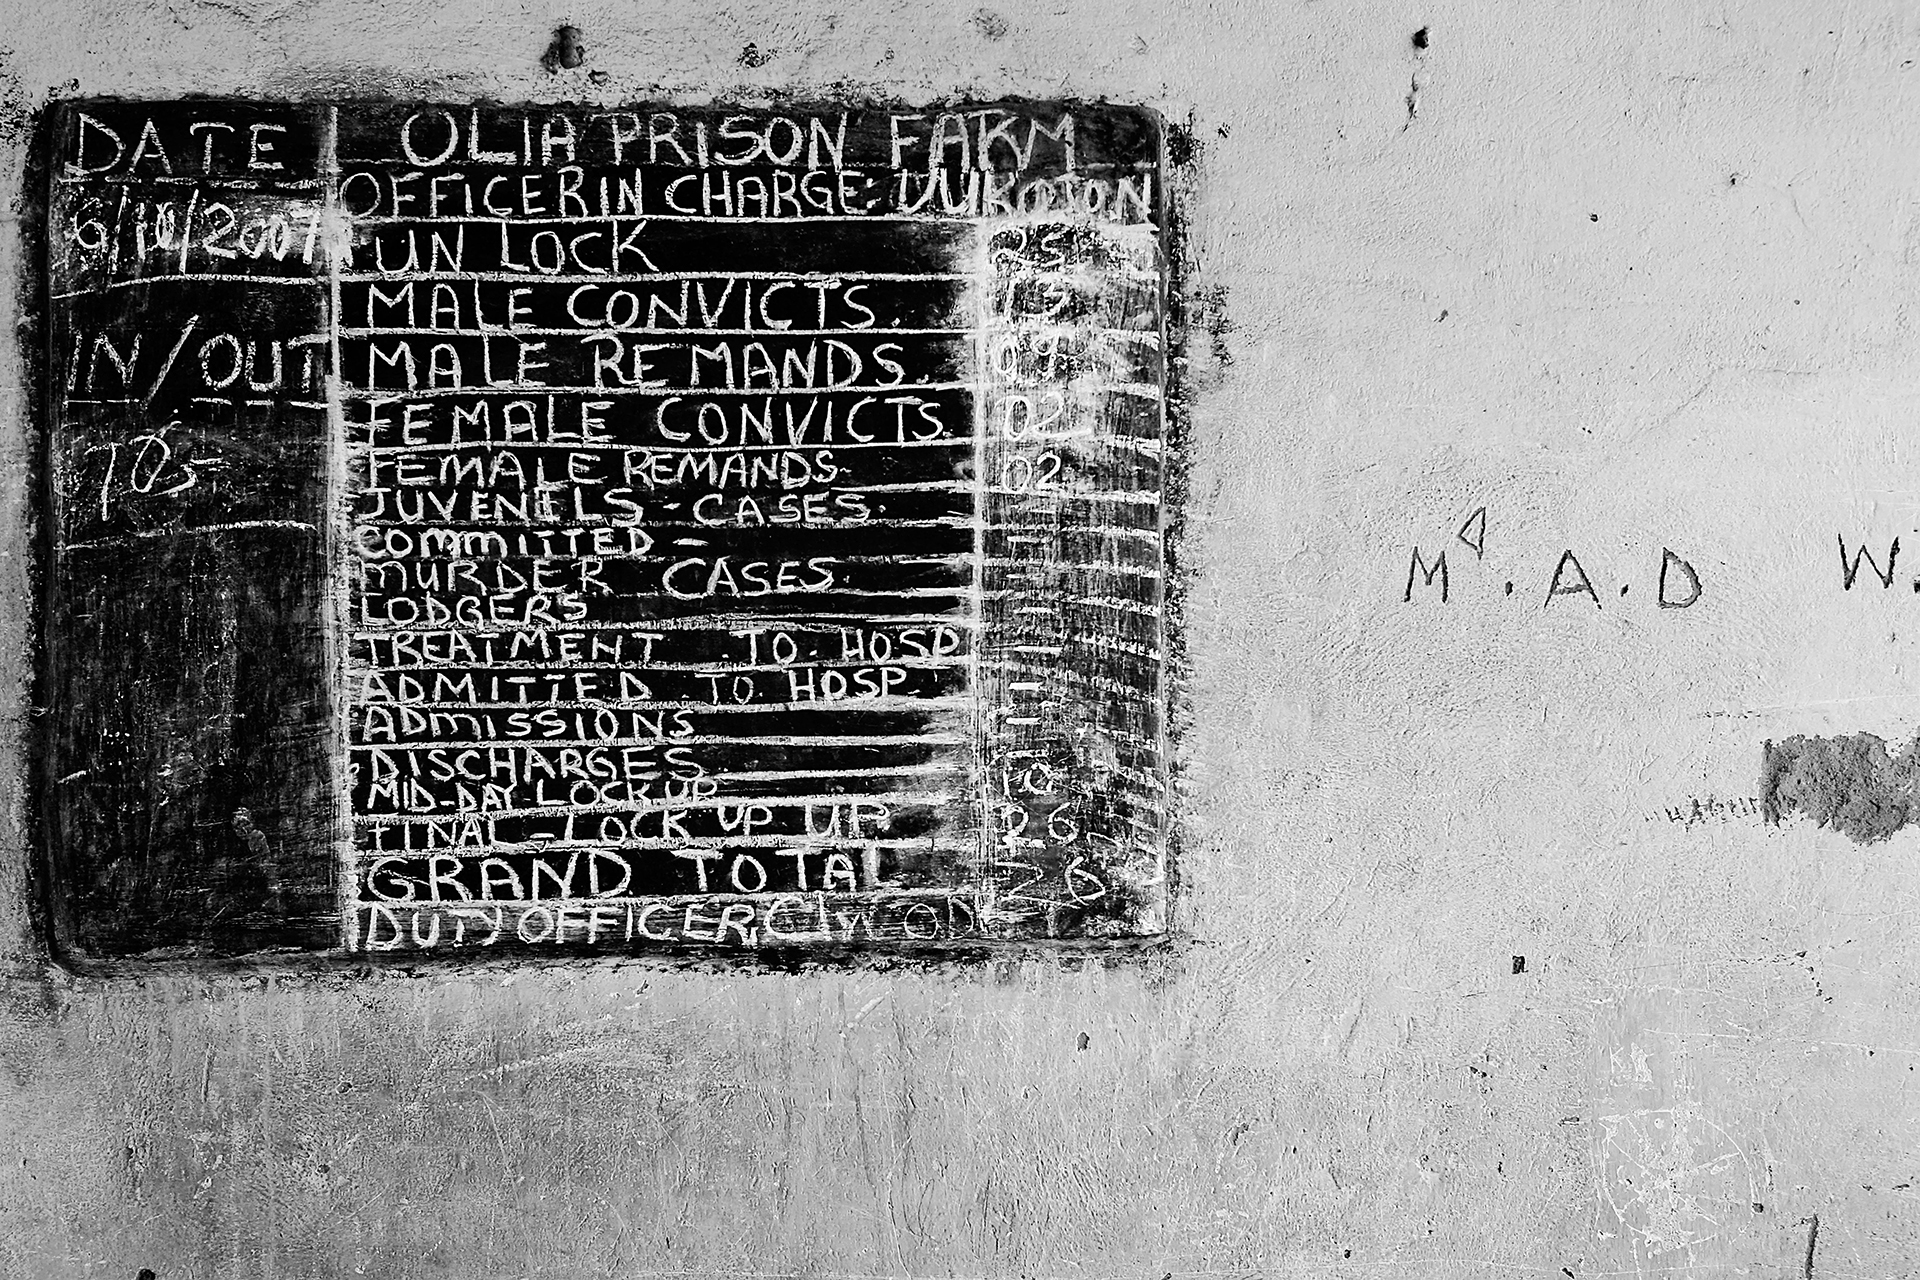 DATE OLIA PRISON FARM
6/10/2007 OFFICER IN CHARGE:
UN LOCK 25
MALE CONVICTS. 13
IN/OUT MALE REMANDS. 09
FEMALE CONVICTS. 02
FEMALE REMANDS 02
JUVENELS - CASES. -
COMMITTED - -
MURDER CASES. -
LODGERS -
TREATMENT TO. HOSP -
ADMITTED TO HOSP. -
ADMISSIONS -
DISCHARGES -
MID-DAY LOCK UP
FINAL - LOCK UP UP. 26
GRAND TOTAL 26
DUTY OFFICER
M.A.D W.